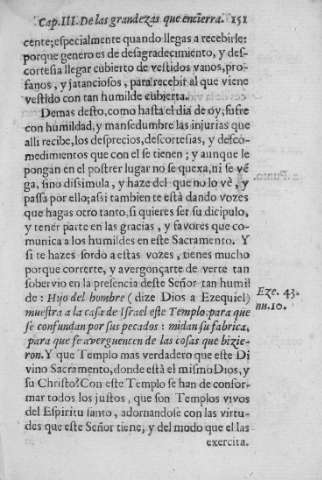 Cap. III. De las grandezas que encierra. 151
cente; especialmente quando llegas a recebirle:
porque genero es de desagradecimiento, y des-
cortesia llegar cubierto de vestidos vanos, pro-
fanos, y jatanciosos, para recebir al que viene
vestido con tan humilde cubierta.
Demas desto, como hasta el dia de oy, sufre
con humildad, y mansedumbre las injurias que
alli recibe, los desprecios, descortesias, y desco-
medimientos que con el se tienen; y aunque le
pongan en el postrer lugar no se quexa, ni se vẽ
ga, sino dissimula, y haze del que no lo vè, y
passa por ello; assi tambien te està dando vozes
que hagas otro tanto, si quieres ser su dicipulo,
y tener parte en las gracias, y favores que co-
munica a los humildes en este Sacramento. Y
si te hazes sordo a estas vozes, tienes mucho
porque correrte, y avergonçarte de verte tan
sobervio en la presencia deste Señor tan humil
de: Hijo del hombre (dize Dios a Ezequiel)
muestra a la casa de Israel este Templo: para que
se confundan por sus pecados: midan su fabrica,
para que se averguencen de las cosas que bizie-
ron. Y que Templo mas verdadero que este Di
vino Sacramento, donde està el mismo Dios, y
su Christo? Con este Templo se han de confor-
mar todos los justos, que son Templos vivos
del Espiritu santo, adornandose con las virtu-
des que este Señor tiene, y del modo que el las
exercita.
Punto.
Eze. 43.
nu. 10.